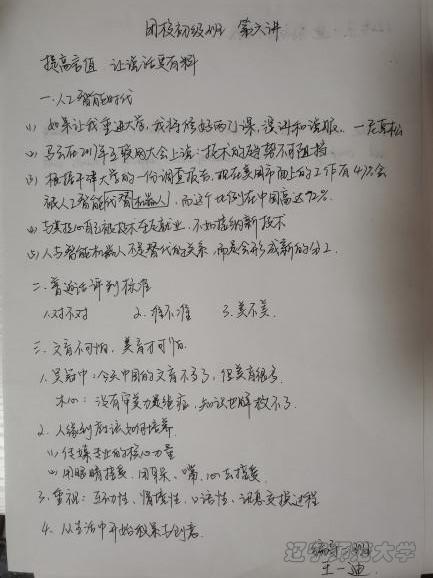 团校初级班 第六讲
提高言值 让说话更有料
一.人工智能时代
(1) 如果让我重进大学,我将修好两门课,演讲和说服.
(2) 马云在2017年互联网大会上说:技术的趋势不可阻挡
(3) 根据牛津大学的一份调查报告,现在美国市面上的工作有47%会
被人工智能代替机器人,而这个比例在中国高达77%.
(4) 与其担心自己被技术夺去就业,不如接纳新技术
(5) 人与智能机器人不是替代的关系,而是会形成新的分工.
二.普通话评判标准
1.对不对 2.准不准 3.美不美.
三.文盲不可怕,美盲才可怕.
1.吴冠中:今天中国的文盲不多了,但美盲很多.
木心:没有审美力是绝症,知识也解救不了.
2.人缘到应该如何培养
(1) 传媒专业的核心力量
(2) 用眼睛接受,用耳朵、嘴、心去接受.
3.重视:互动性、情境性、口语性、讯息交换过程
4.从生活中开始积累与创意.
王一迪.
辽宁师范大学